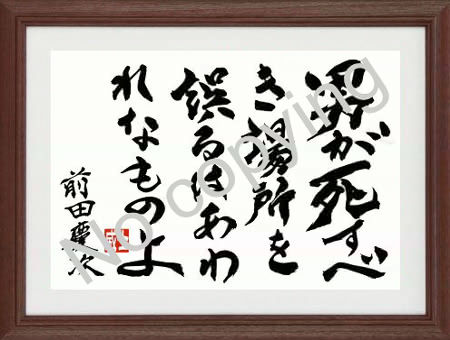 男が死すべ
き場所を
誤るはあわ
れなものよ
前田慶次
No copying